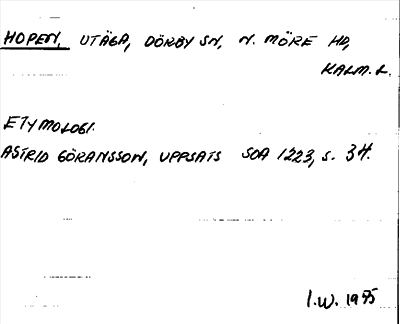 HOPEN, UTÄGA, DÖRBY SN, N. MÖRE HD,
KALM. L.
ETYMOLOGI.
ASTRID GÖRANSSON, UPPSATS SOA 1223, S. 34.
I.W. 1975